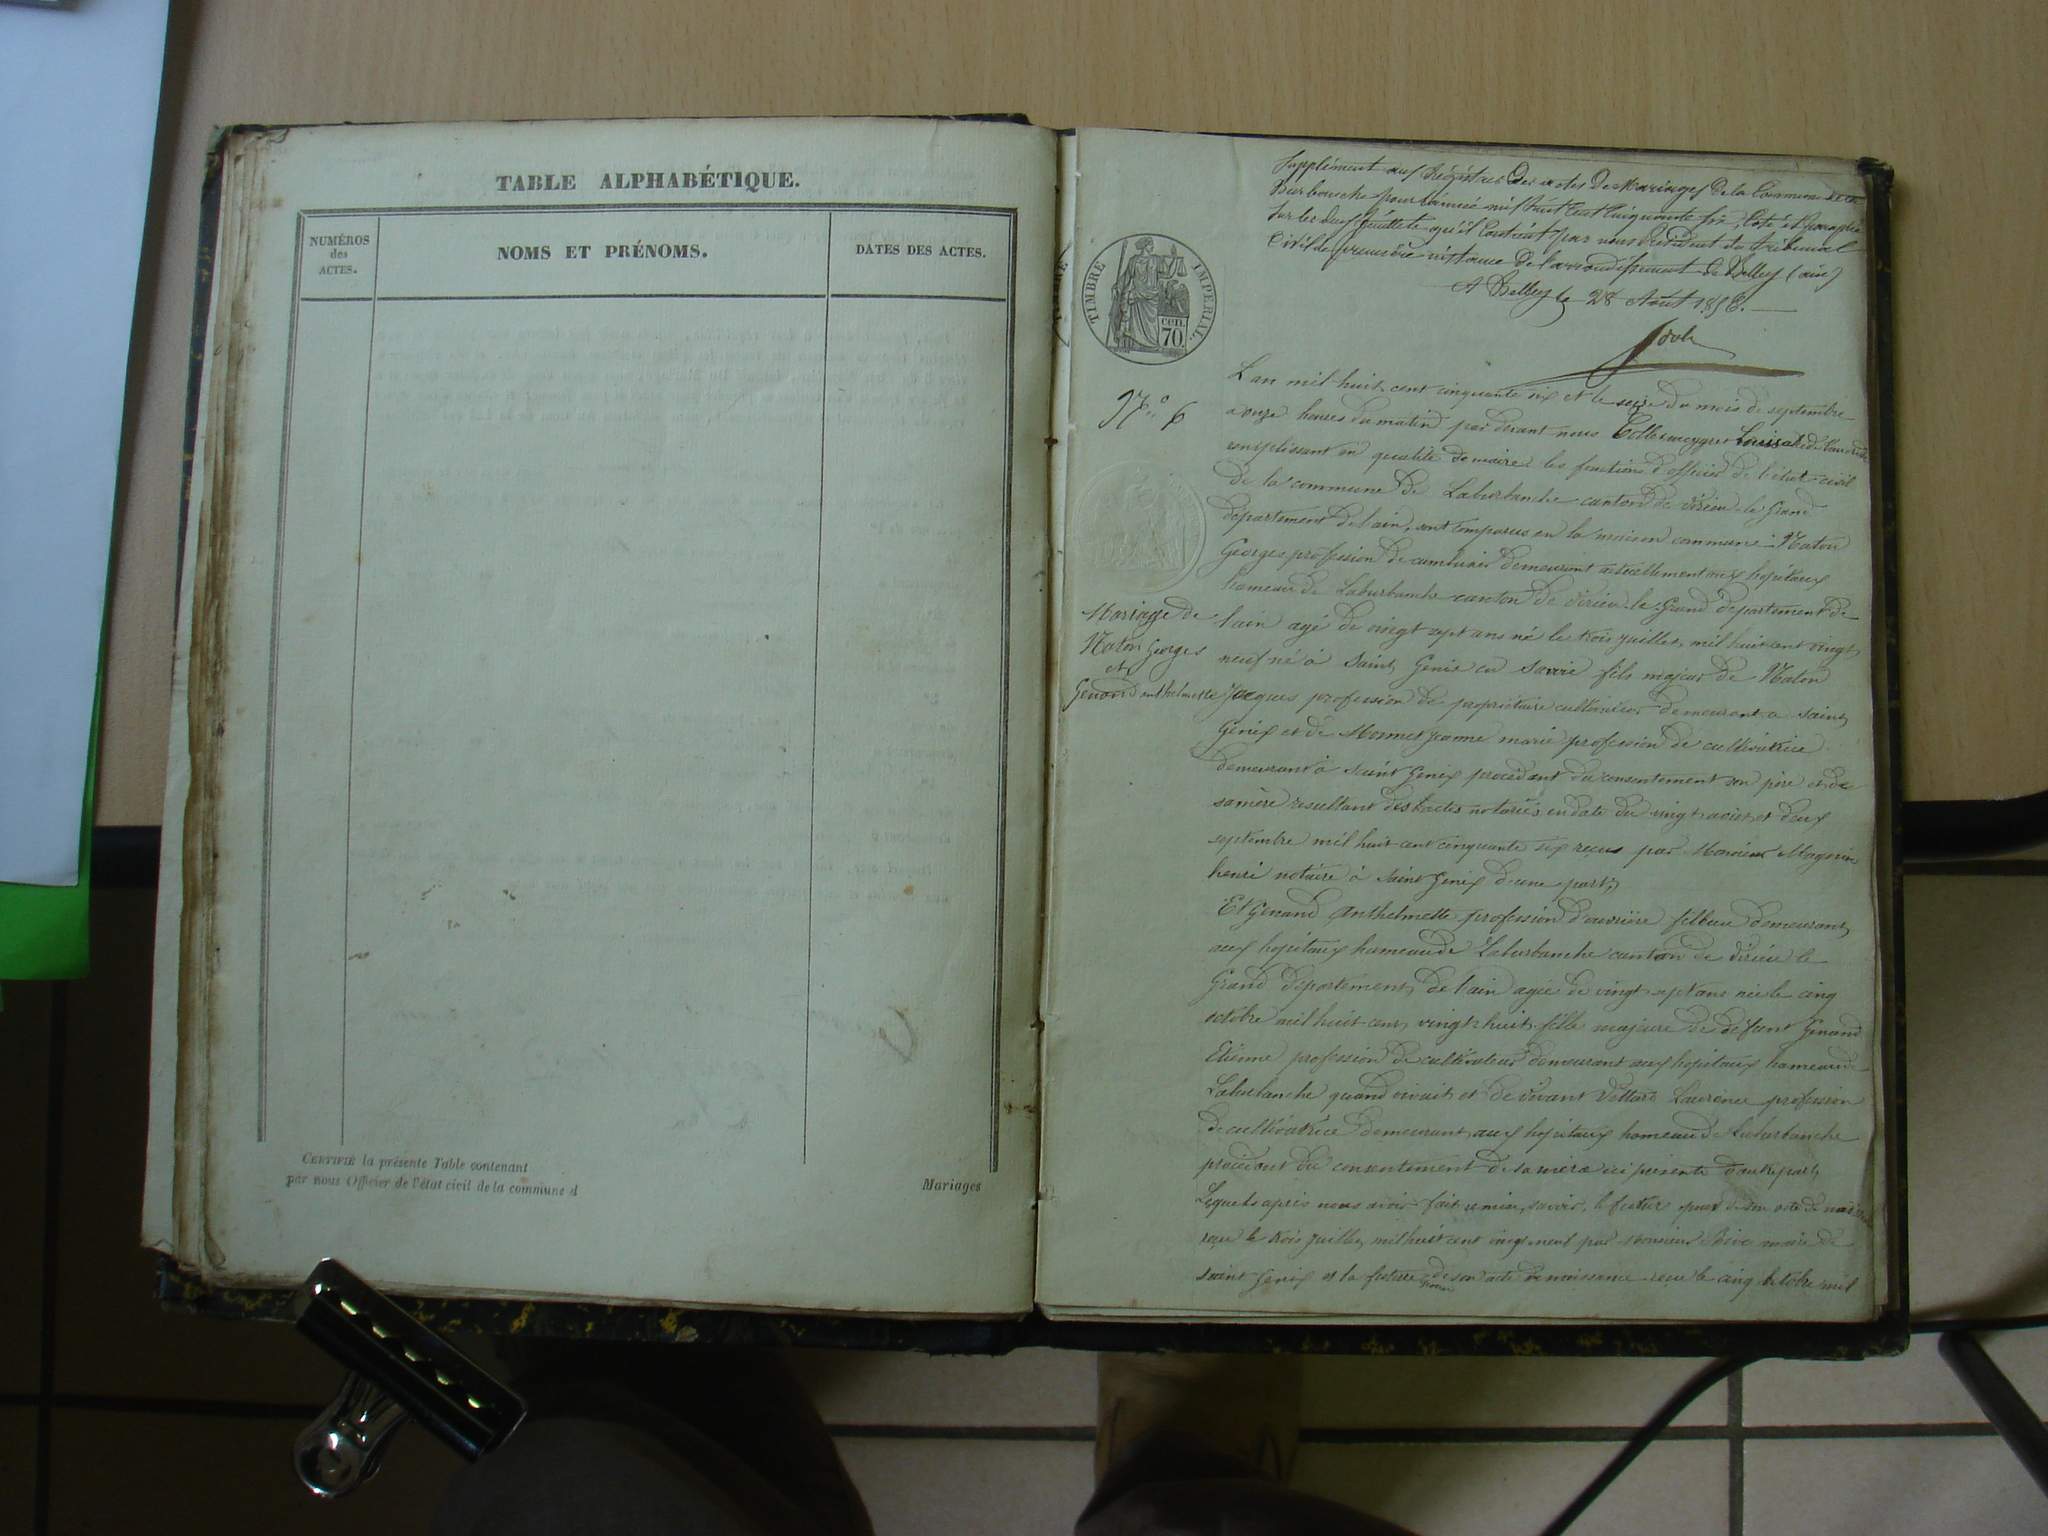 TABLE ALPHABÉTIQUE.
NUMÉROS
des
ACTES.
NOMS ET PRÉNOMS.
DATES DES ACTES.
CERTIFIÉ la présente Table contenant
par nous Officier de l'état civil de la commune d
Mariages
Supplément aux Régistres des actes de Mariages de la Commune de La
Burbanche pour l'année mil huit cent cinquante six, Coté et Paraphé
sur les deux feuillets qu'il contient par nous Président du Tribunal
Civil de première instance de l'arrondissement de Belley (ain)
A Belley le 28 Août 1856.
TIMBRE IMPERIAL.
70. cen.
N.º 6
L'an mil huit cent cinquante six et le seize du mois de septembre
a onze heures du matin par devant nous Louis
remplissant en qualité de maire les fonctions d'officier de l'état civil
de la commune de Laburbanche canton de virieu le Grand
département de l'ain, sont comparus en la maison commune Naton
Georges profession de demeurant actuellement aux hopitaux
hameau de Laburbanche canton de virieu le Grand département de
Mariage de
Naton Georges
et
Genand anthelmette
l'ain agé de vingt sept ans né le trois juillet mil huit cent vingt
neuf né à Saint Genix en Savoie fils majeur de Naton
Jacques profession de propriétaire cultivateur demeurant a saint
Genix et de Monnet Jeanne marie profession de cultivatrice
demeurant à Saint Genix procédant du consentement son père et de
sa mère resultant des actes notariés en date du vingt aout et deux
septembre mil huit cent cinquante six reçus par Monsieur Magnin
henri notaire à Saint Genix d'une part;
Et Genand Anthelmette profession d'ouvrière fileuse demeurant
aux hopitaux hameau de Laburbanche canton de virieu le
Grand département de l'ain agée de vingt sept ans née le cinq
octobre mil huit cent vingt huit fille majeure de défunt Genand
Etienne profession de cultivateur demeurant aux hopitaux hameau de
Laburbanche quand vivait et de vivant Vettard Laurence profession
de cultivatrice demeurant aux hopitaux hameau de Laburbanche
procédant du consentement de sa mère ici présente d'autre part,
Lesquels après nous avoir fait remise, savoir, le futur époux de son acte de naissance
reçu le trois juillet mil huit cent vingt neuf par Monsieur maire de
Saint Genix et la future de son acte de naissance reçu le cinq octobre mil